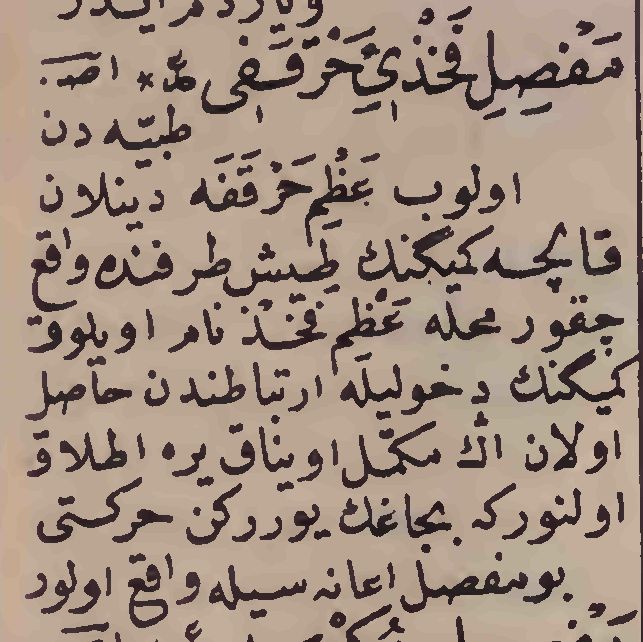 ویاردم ایدر
مَفْصِلِ فَخْذِیِّ حَرْقَفِی مذ * اصـ
طبیّه دن
اولوب عَظْمِ حَرْقَفَه دینلان
قالچه کمیگنك طیش طرفنده واقع
چقور محله عَظْمِ فَخْذ نام اویلوق
كمیگنك دخولیله ارتباطندن حاصل
اولان اڭ مكمّل اویناق یره اطلاق
اولنوركه بجاغك یوررکن حرکتی
بو مفصل اعانه سیله واقع اولور